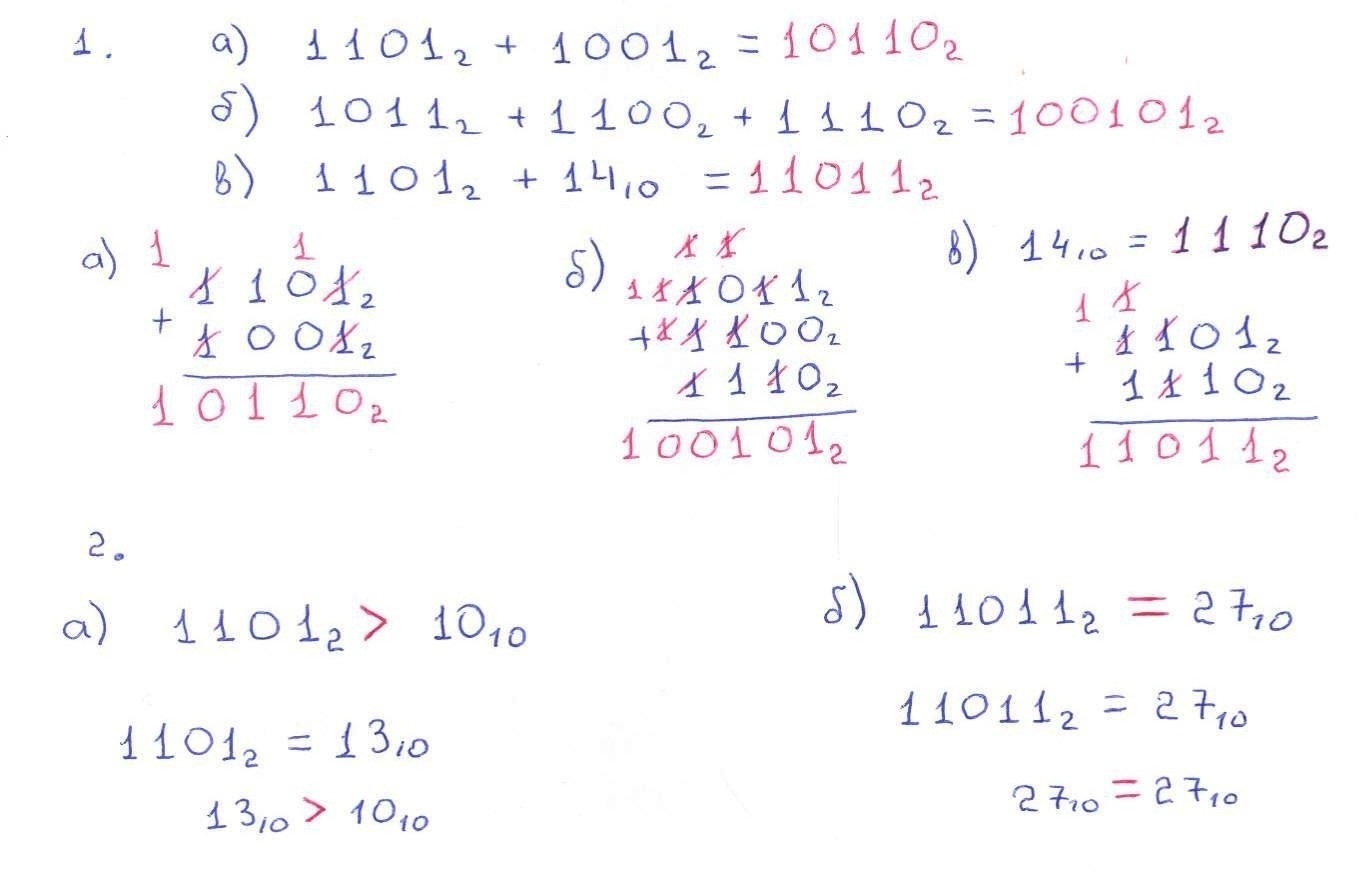 1. а) 1101₂ + 1001₂ = 10110₂
б) 1011₂ + 1100₂ + 1110₂ = 100101₂
в) 1101₂ + 14₁₀ = 11011₂
а) 1 1
1101₂
+
1001₂
10110₂
б) 1 1
1111011₂
+ 11100₂
1110₂
100101₂
в) 14₁₀ = 1110₂
1 1
1101₂
+
1110₂
11011₂
2.
а) 1101₂ > 10₁₀
1101₂ = 13₁₀
13₁₀ > 10₁₀
б) 11011₂ = 27₁₀
11011₂ = 27₁₀
27₁₀ = 27₁₀